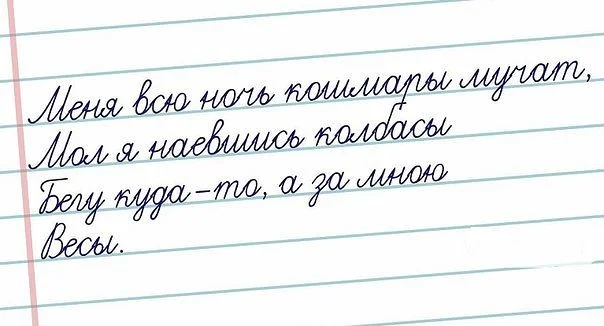 Меня всю ночь кошмары мучат,
Мол я наевшись колбасы
Бегу куда-то, а за мною
Весы.